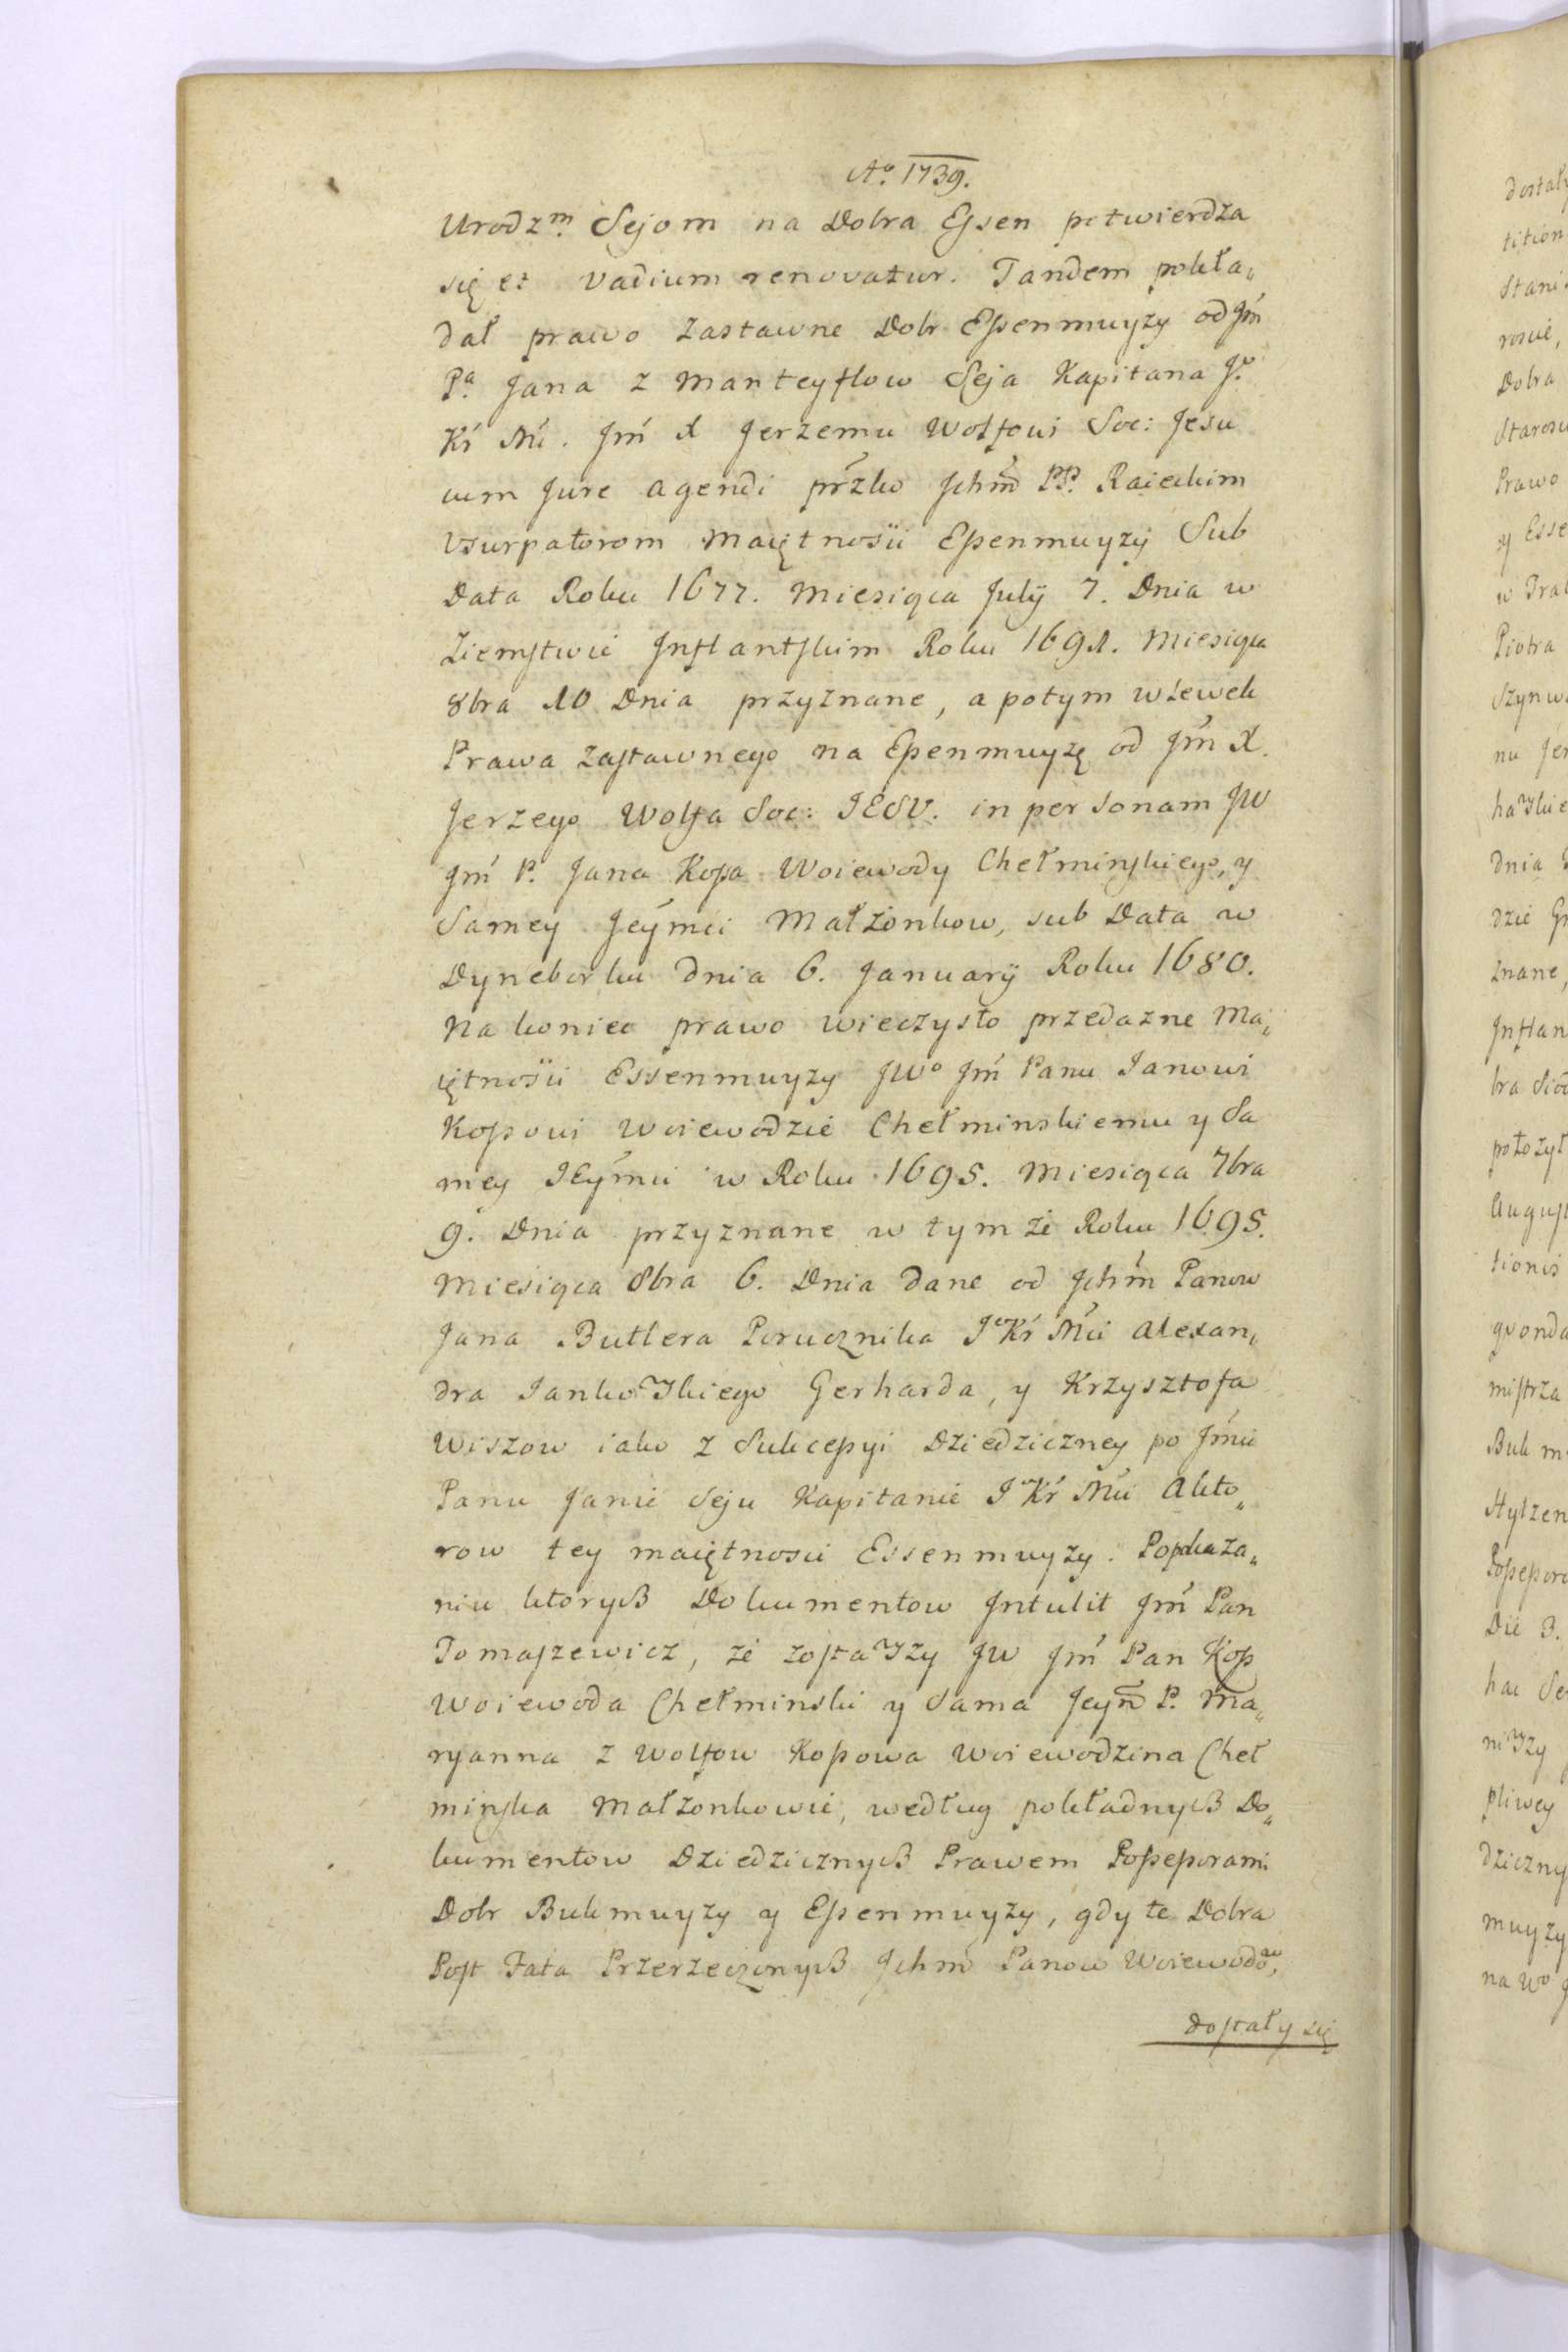 Aº 1739.
Urodz.m Sejom na Dobra Essen potwierdza
się et Vadium renovatur. Tandem pokła„
dał prawo zastawne Dobr Essenmuyzy od Jm̃
P.a Jana z Manteyflow Seja Kapitana J.o
Kr Mci. Jm̃ X Jerzemu Wolfowi Soc: Jesu
cum Jure agendi przko Jchm̃ PP. Raieckim
Vsurpatorom Maiętnosci Essenmuyzy Sub
Data Roku 1677. Miesiąca July 7. Dnia w
Ziemstwie Inflantskim Roku 1691. Miesiąca
8bra 10 Dnia przyznane, a potym wlewek
Prawa zastawnego na Essenmuyzę od Jm̃ X.
Jerzego Wolfa Soc: IESV. in personam JW
Jm̃ P. Jana Kossa Woiewody Chełminskiego, y
Samey Jeymci Małżonkow, sub Data w
Dyneborku dnia 6. January Roku 1680.
Na koniec prawo wieczysto przedazne Ma„
iętnosci Essenmuyzy JWo Jm̃ Panu Janowi
Kossowi Woiewodzie Chełminskiemu y Sa
mey JEymci w Roku 1695. Miesiąca 7bra
9. Dnia przyznane w tymże Roku 1695.
Miesiąca 8bra 6. Dnia dane od Jchm̃ Panow
Jana Butlera Porucznika Jo Kr Mci Alexan„
dra Jankowskiego Gerharda, y Krzysztofa
Wiszow iako z Sukcessyi Dziedziczney po Jmci
Panu Janie Seju Kapitanie Jo Kr Mci Akto„
row tey maiętnosci Essenmuyzy. Po pokaza„
niu ktorych Dokumentow Intulit Jm̃ Pan
Tomaszewicz, że zostawszy JW Jm̃ Pan Koss
Woiewoda Chełminski y Sama Jeym̃ P. Ma„
ryanna z Wolfow Kossowa Woiewodzina Cheł
minska Małżonkowie, według pokładnych Do„
kumentow Dziedzicznych Prawem Possessorami
Dobr Bukmuyzy y Essenmuyzy, gdy te Dobra
Post Fata Przerzeczonych Jchm̃ Panow Woiewodow,
dostały się